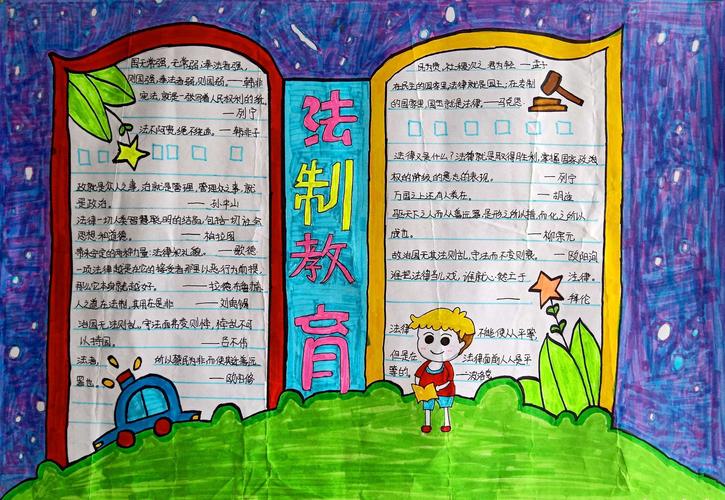 国无常强,无常弱;奉法者强,
则国强,奉法者弱,则国弱。——韩非
宪法,就是一张写着人民权利的纸。
——列宁
法不阿贵,绳不挠曲。——韩非子
政就是众人之事,治就是管理,管理众之事,就
是政治。——孙中山
法律一切人类智慧聪明的结晶,包括一切社会
思想和道德。——柏拉图
两种力量:法律和礼貌。——歌德
一项法律越是在它的接受者那里以恶行为前提,
那么它本身就越好。——拉德布鲁赫
人之道在法制,其用在是非——刘禹锡
治国无法则乱,守法而弗变则悖,悖乱不可
以持国。——吕不韦
法者,所以禁民为非而使其迁善远
罪也。——欧阳修
法制教育
民为贵,社稷次之,君为轻——孟子
在民主的国家里,法律就是国王;在专制
的国家里,国王就是法律。——马克思
法律又是什么?法律就是取得胜利、掌握国家政
权的阶级的意志的表现。——列宁
万国之上还有人类在。——胡适
驱天下之人而从善远罪,是形之所以措,而化之所以
成也。——柳宗元
故治国无其法则乱,守法而不变则衰。——欧阳询
谁把法律当儿戏,谁就必然亡于法律。
——拜伦
法律不能使人人平等,
但是在法律面前人人是平
等的。——波洛克